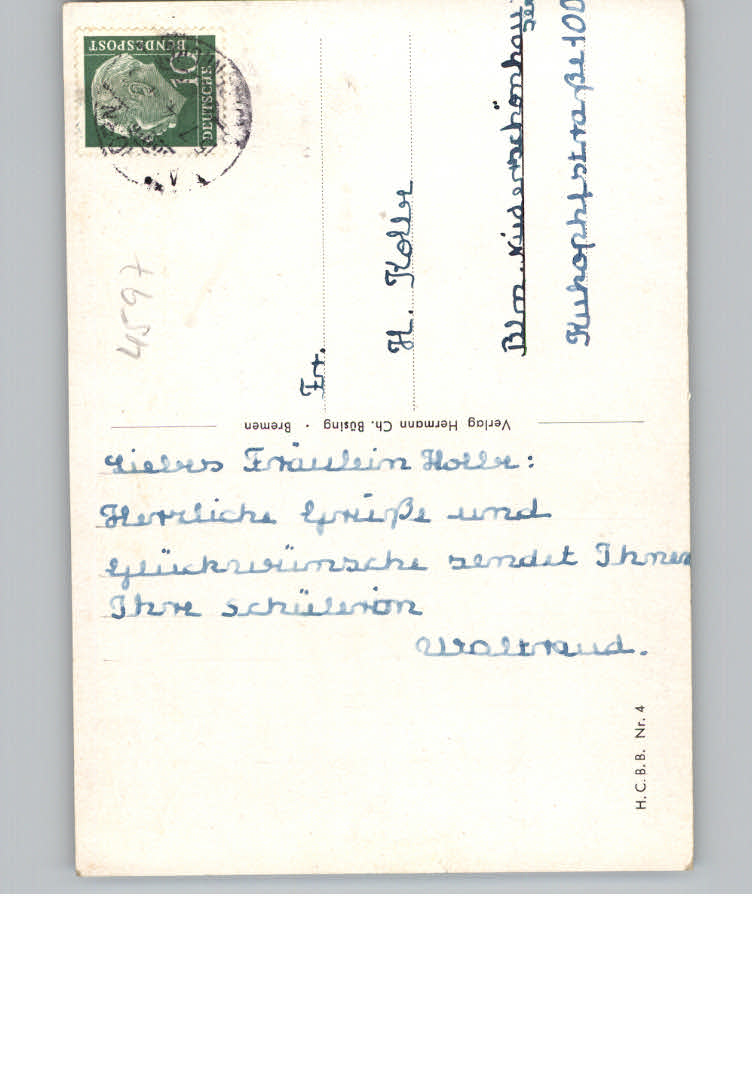 Liebes Fräulein Holbr:
Herzliche Grüße und
Glückwünsche sendet Ihnen
Ihre Schülerin
Waltraud.
Fr.
H. Kolbr
Bln. Niederschönhau
Kuhophstraße 100
Verlag Hermann Ch. Büsing · Bremen
H.C.B.B. Nr. 4
4597
DEUTSCHE
BUNDESPOST
10